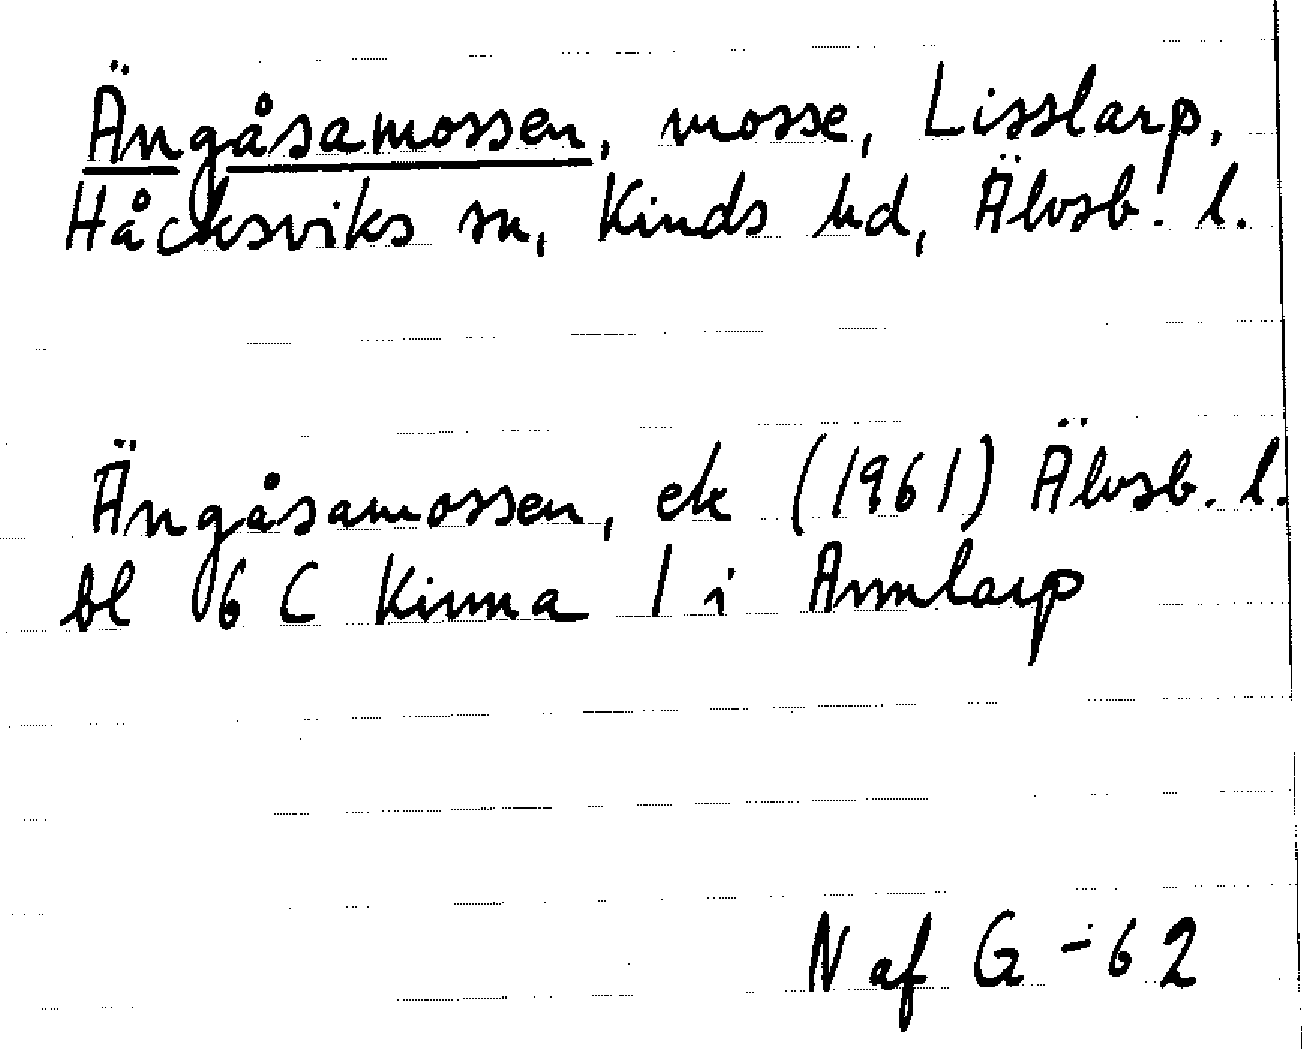 Ängåsamossen, mosse, Lisslarp,
Håcksviks sn, Kinds hd, Älvsb. l.
Ängåsamossen, ek (1961) Älvsb. l.
bl 6 C Kinna 1 i Annlarp
N af G -62